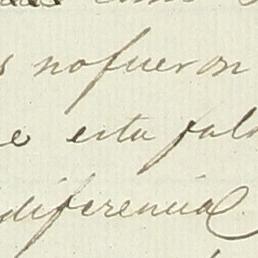 s no fueron
e esta fal
diferencia